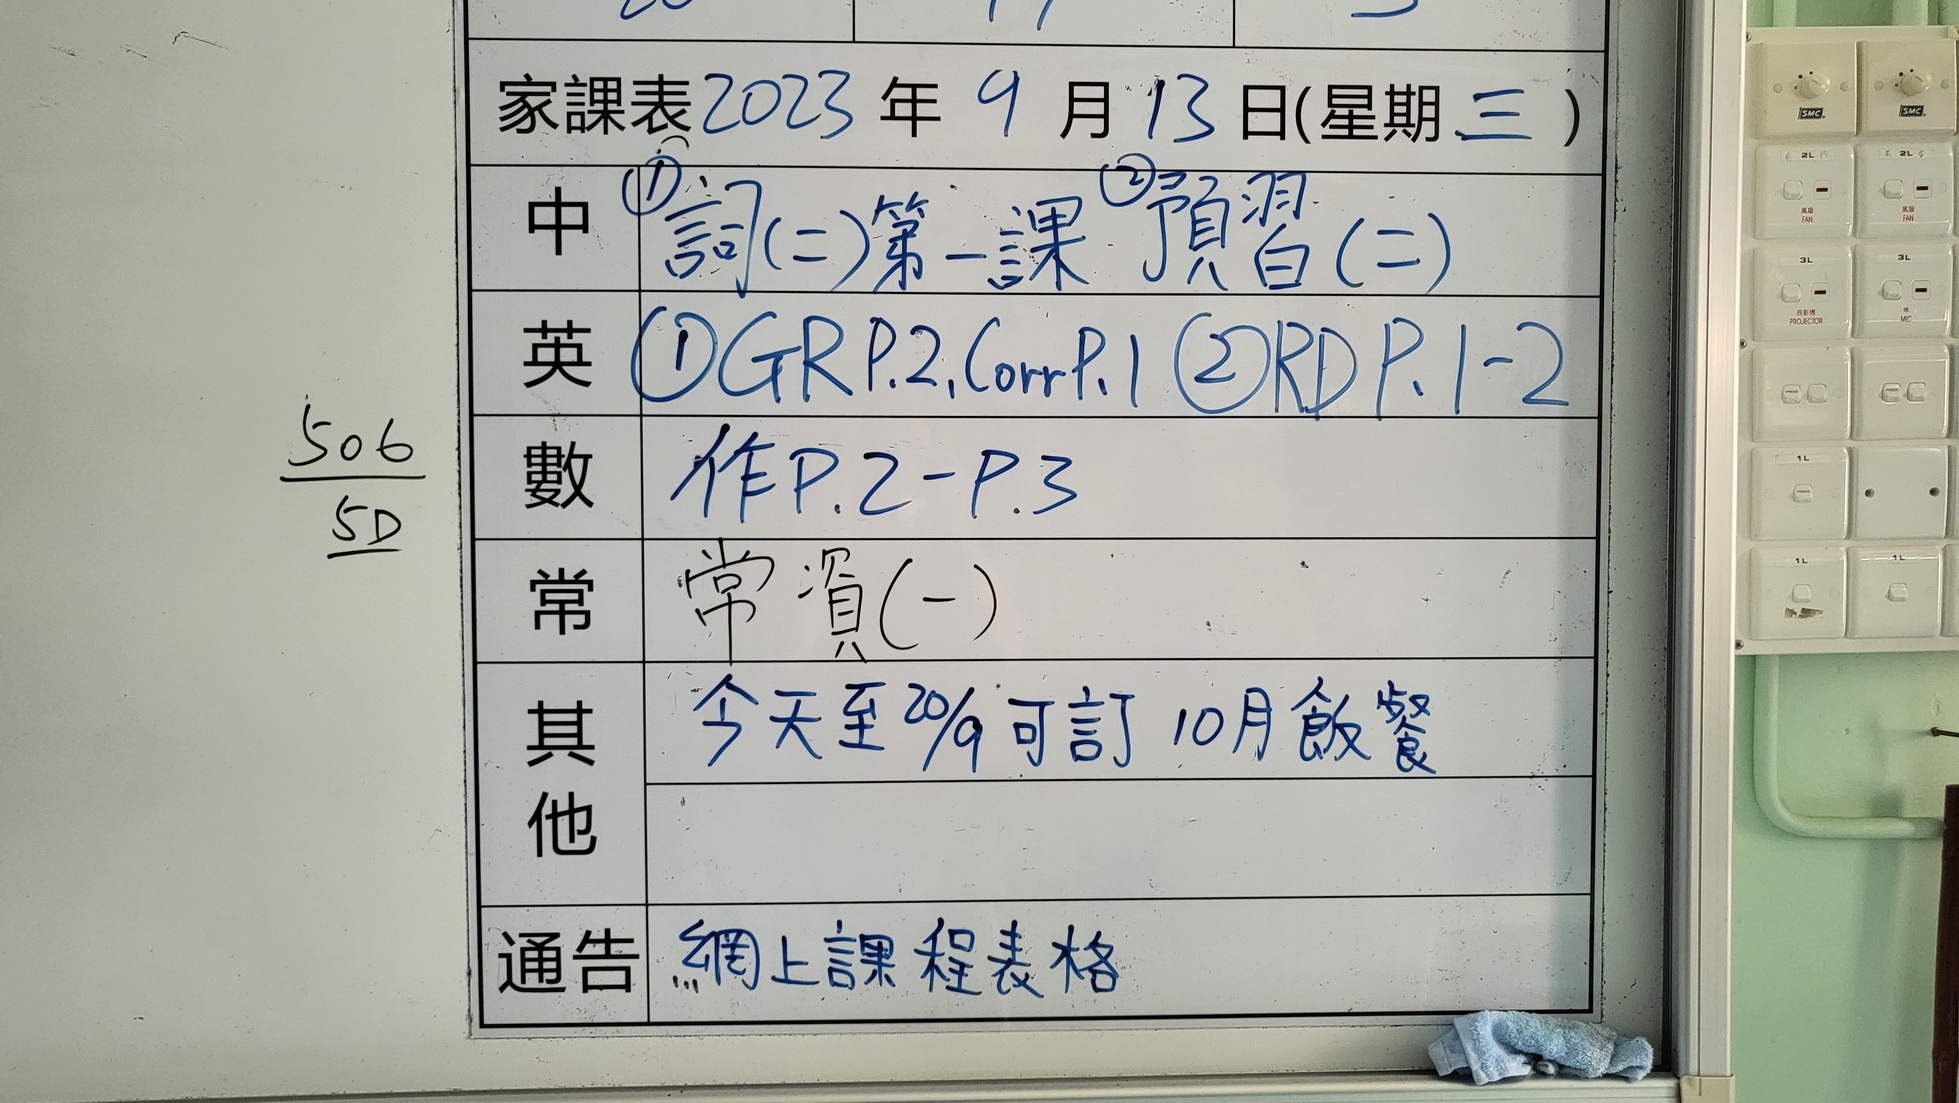 家課表2023年 9月13日(星期三)
中 ①詞(二)第一課 ②預習(二)
英 ①GR P.2, Corr P.1 ②RD P.1-2
數 作P.2-P.3
常 常資(一)
其他 今天至20/9可訂10月飯餐
通告 網上課程表格
506
5D
SMC
SMC
2L
2L
風扇
FAN
FAN
3L
3L
投影機
PROJECTOR
MIC
1L
1L
1L